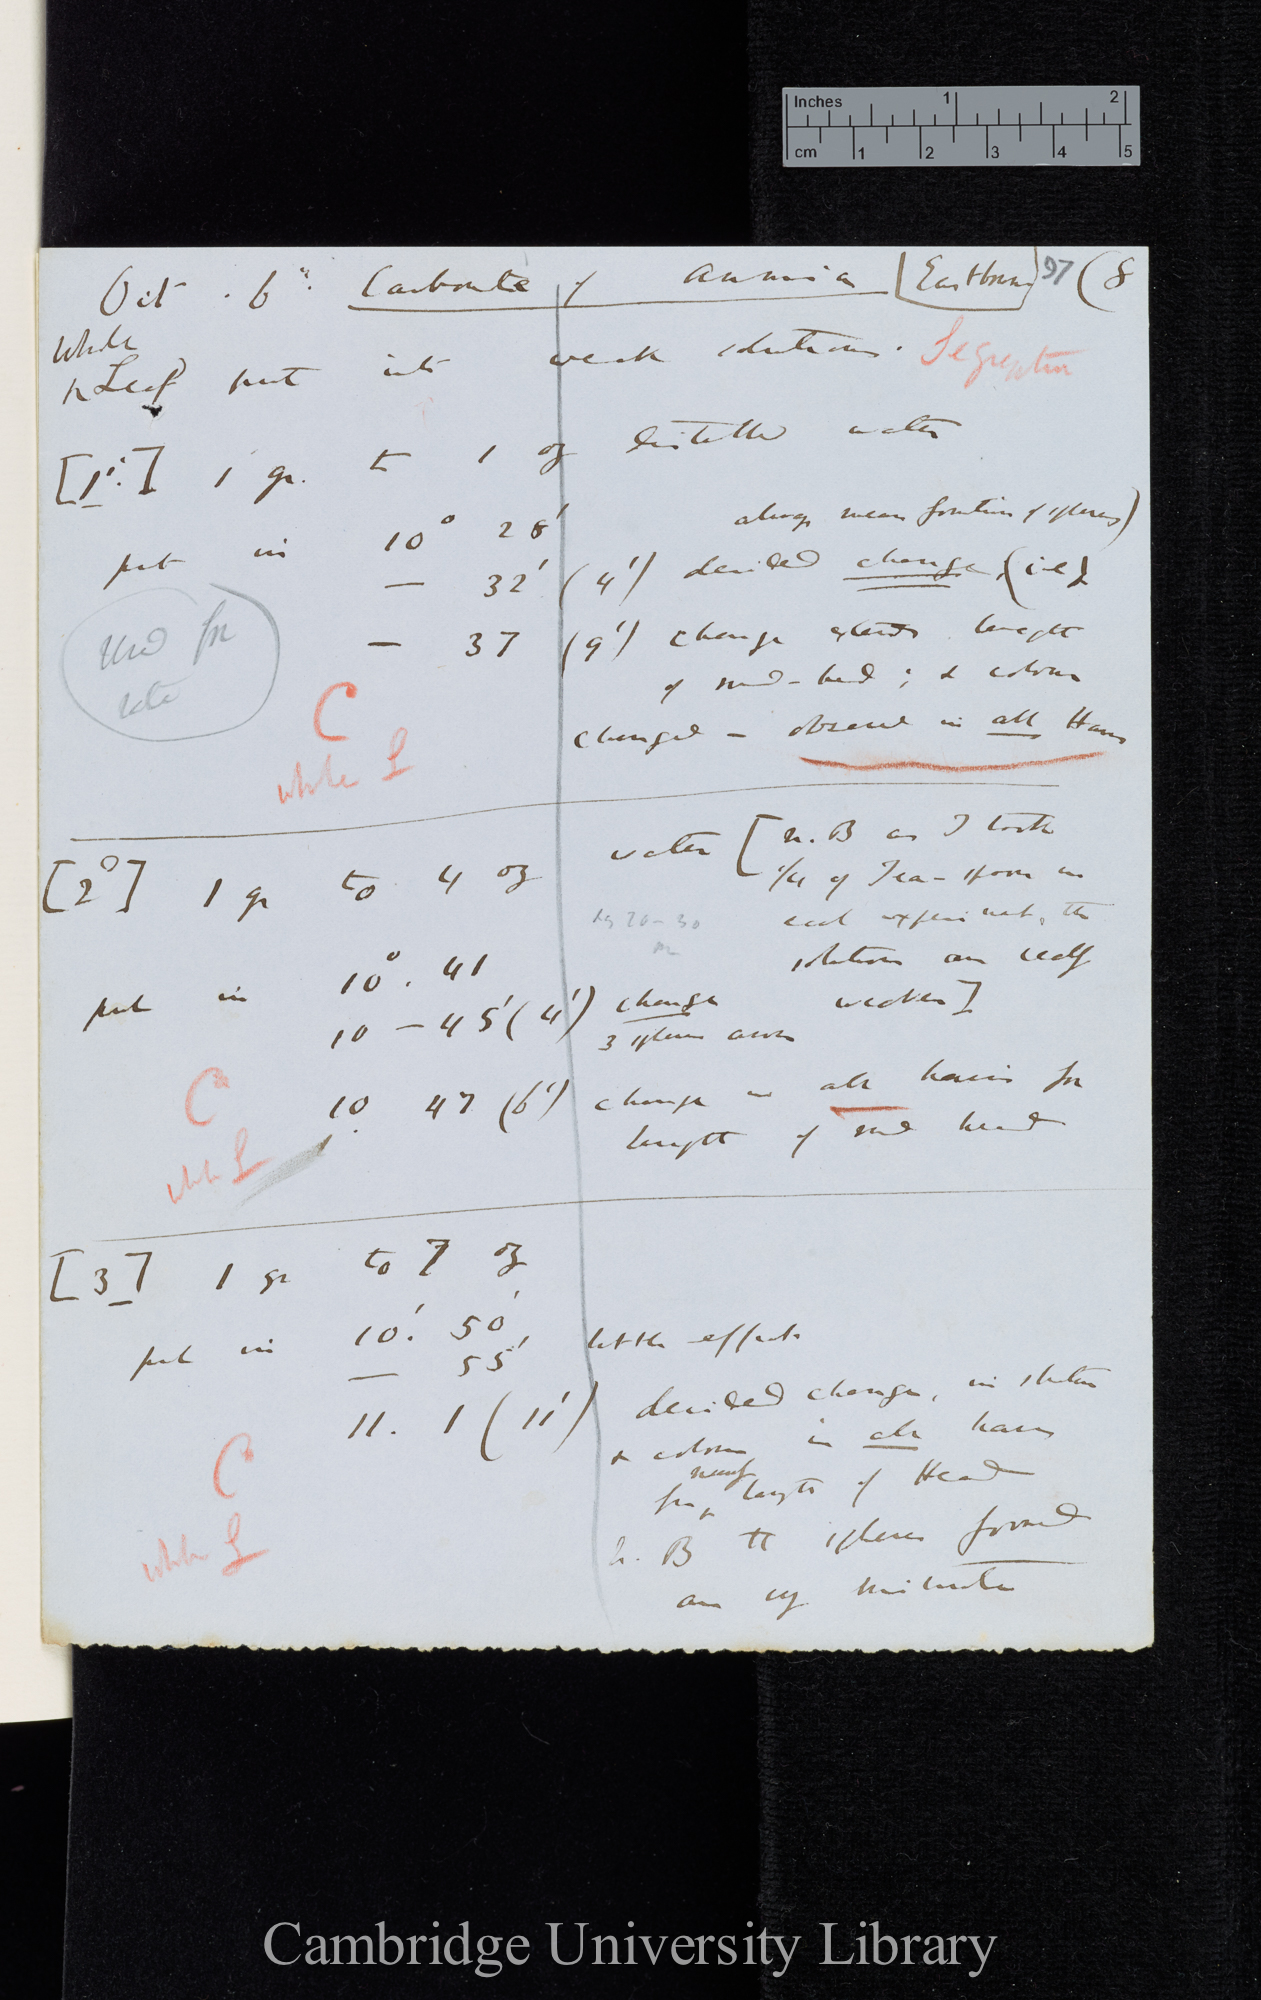 Inches 1 2
cm 1 2 3 4 5
Oct. 6th. Carbonate of Ammonia [Eastbourne] 97 (8
Whole
Leaf put into weak solutions. Segregation
[1º] 1 gr. to 1 oz distilled water
always mean formation of spheres)
put in 10º 28'
— 32' (4') decided change (i.e.
— 37 (9') change extends length
of red-head; & colour
changed — observed in all Hairs
Used for
rate
C
whole L
[2º] 1 gr to 4 oz water [N.B as I took
1/4 of Tea-spoon in
each experiment, the
solutions are really
weaker]
put in 10º. 41
10 — 45' (4') change
3 spheres
10 47 (6') change in all hairs for
length of red head
C
whole L
[3] 1 gr to 7 oz
put in 10'. 50'
— 55' little effect
11. 1 (11') decided change, in
& colour in all hairs
for nearly length of Head
N.B the spheres formed
are very minute
C
whole L
Cambridge University Library